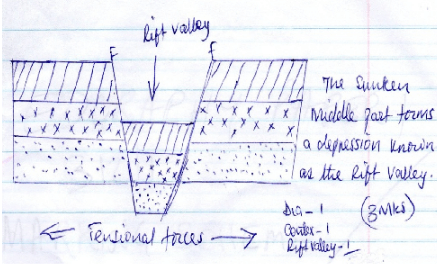 Rift valley
F
F
The Sunken
middle part forms
a depression known
as the Rift Valley.
(3 Mks)
Dia - 1
Contex - 1
Rift valley - 1
← Tensional forces →